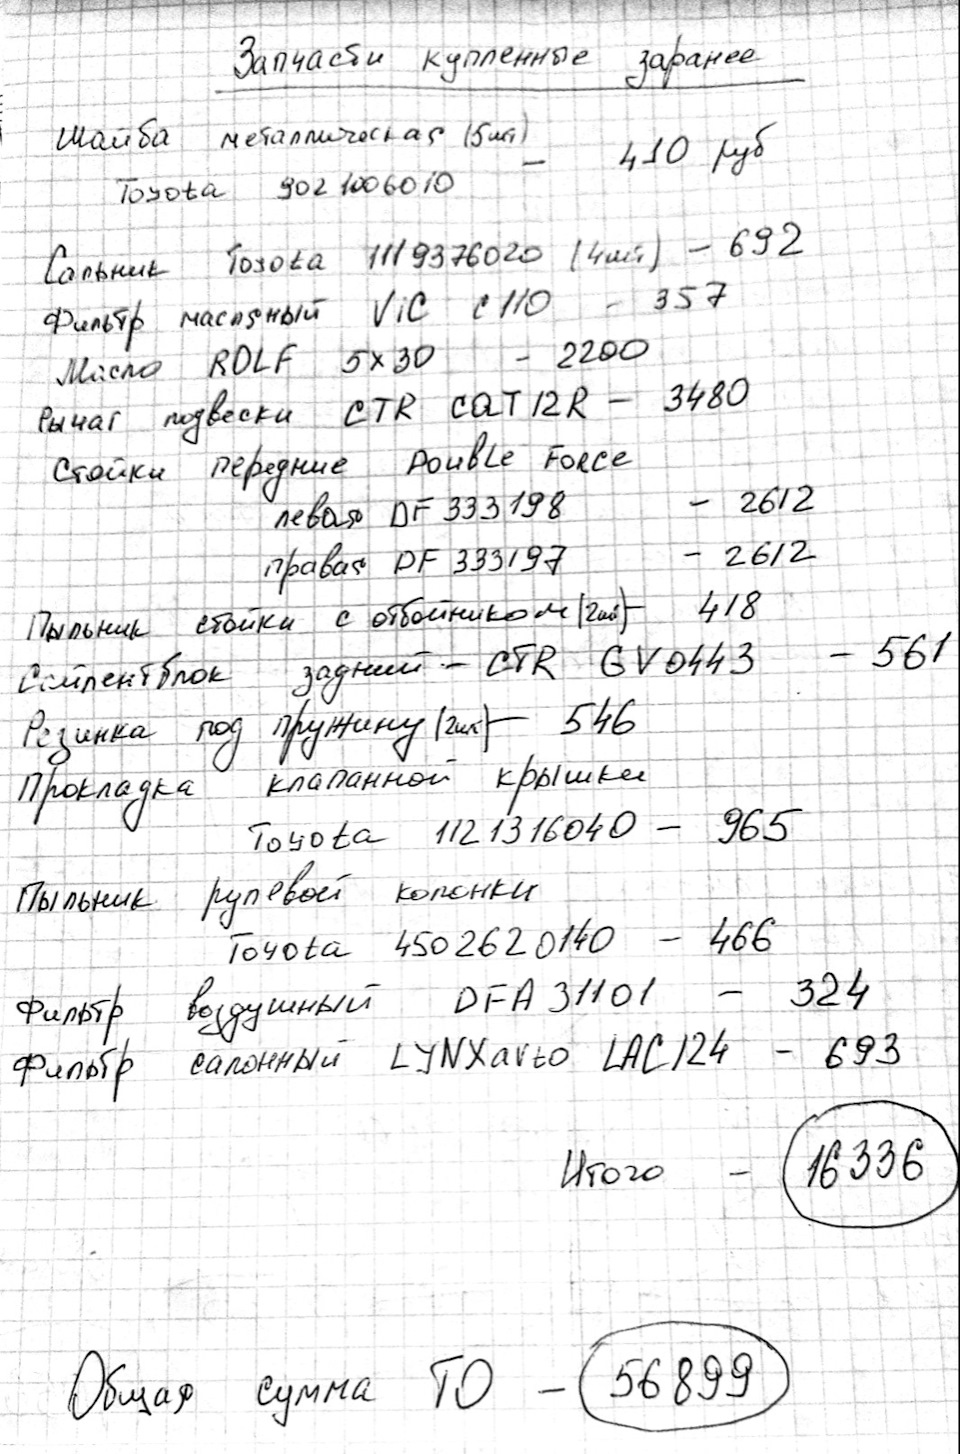 Запчасти купленные заранее
Шайба металлическая (5шт)
Toyota 9021006010 - 410 руб
Сальник Toyota 1119376020 (4шт) - 692
Фильтр масляный ViC C110 - 357
Масло ROLF 5x30 - 2200
Рычаг подвески CTR CQT12R - 3480
Стойки передние Double Force
левая DF 333198 - 2612
правая DF 333197 - 2612
Пыльник стойки с отбойником (2шт) - 418
Сайлентблок задний - CTR GV0443 - 561
Резинка под пружину (2шт) - 546
Прокладка клапанной крышки
Toyota 1121316040 - 965
Пыльник рулевой колонки
Toyota 4502620140 - 466
Фильтр воздушный DFA31101 - 324
Фильтр салонный LYNXavto LAC124 - 693
Итого - 16336
Общая сумма ТО - 56899